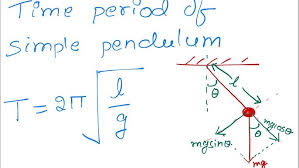 Time period of
simple pendulum
T = 2π √(l/g)
l
θ
θ
mgsinθ
mgcosθ
mg